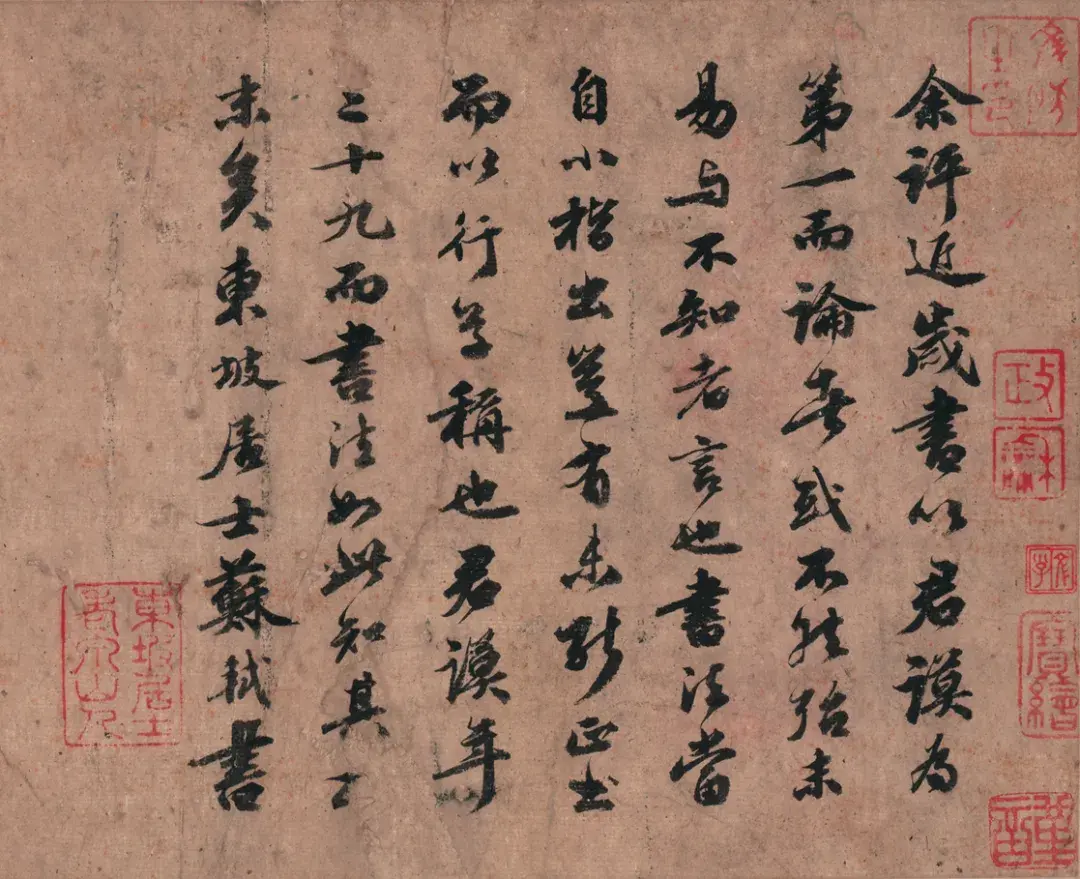 余評近歲書以君謨為
第一而論者或不然殆未
易与不知者言也書法當
自小楷出豈有未能正書
而以行草稱也君謨年
二十九而書法如此知其
末矣東坡居士蘇軾書
政龢
寶繪
東坡居士
老泉山人